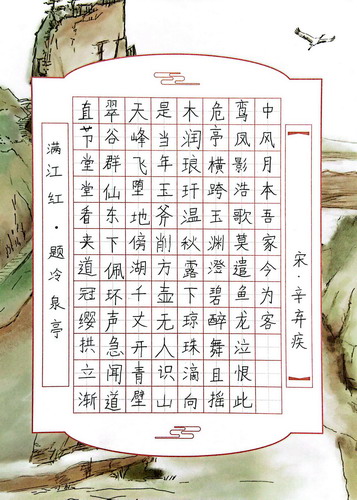 满江红·题冷泉亭
直节堂堂看夹道冠缨拱立渐
翠谷群仙东下佩环声急闻道
天峰飞堕地傍湖千丈开青壁
是当年玉斧削方壶无人识山
木润琅玕温秋露下琼珠滴向
危亭横跨玉渊澄碧醉舞且摇
鸾凤影浩歌莫遣鱼龙泣恨此
中风月本吾家今为客
宋·辛弃疾